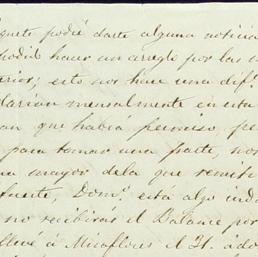 quete podré darte alguna noticia
podido hacer un arreglo por las
erior; esto nos hace una dif.ª
darian mensualmente en esta
an que había permiso, pe
para tomar una parte, nos
na mayor dela que remite
fuerte, Dom.º está algo ind
no recibirás el Balance por
llevé à Miraflores el H. ado